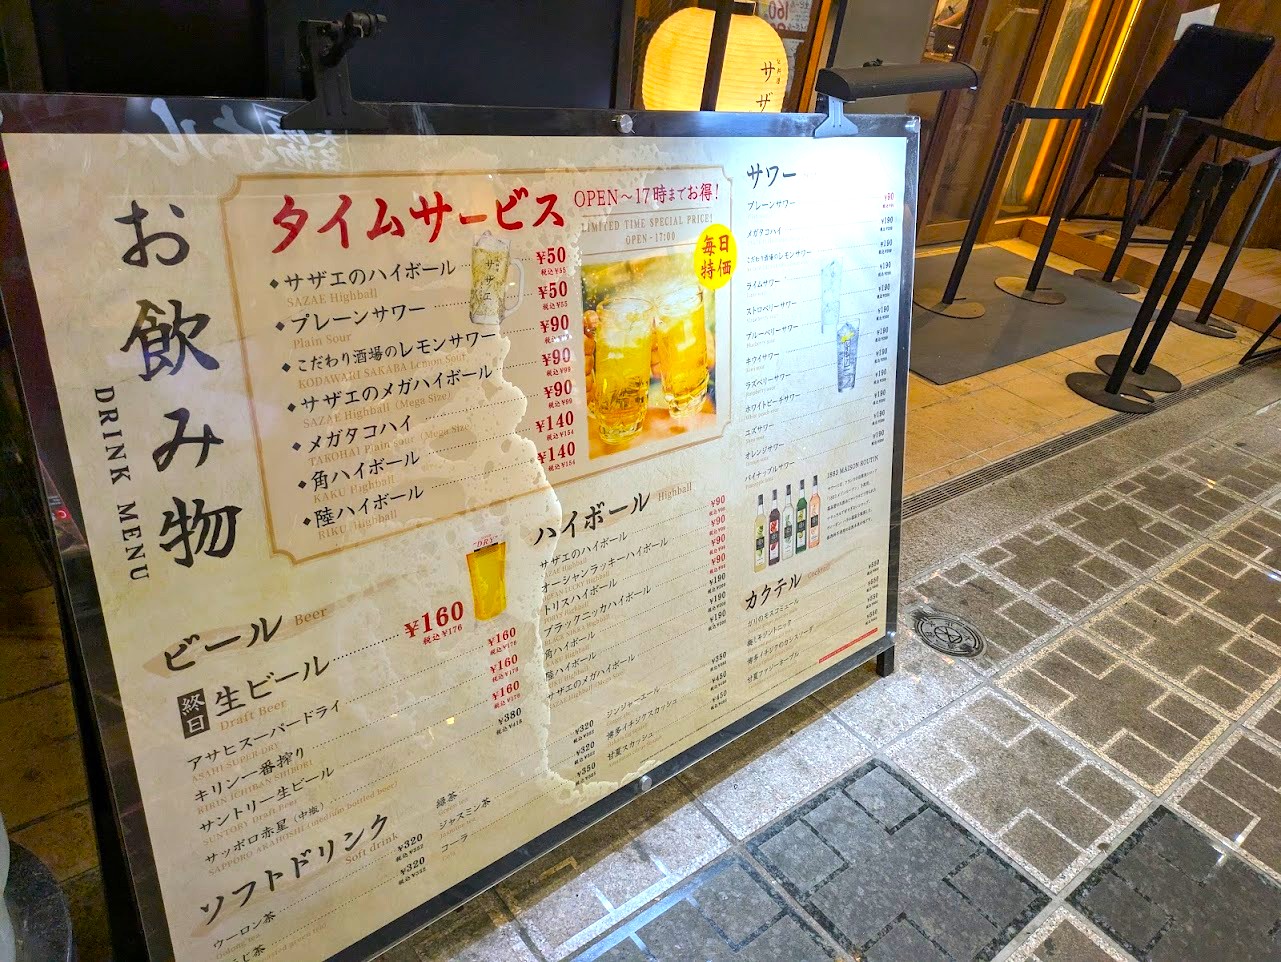 サザ
お飲み物
DRINK MENU
タイムサービス
OPEN～17時までお得!
LIMITED TIME SPECIAL PRICE!
OPEN-17:00
毎日
特価
サザエのハイボール ¥50
SAZAE Highball 税込¥55
プレーンサワー ¥50
Plain Sour 税込¥55
こだわり酒場のレモンサワー ¥90
KODAWARI SAKABA Lemon Sour 税込¥99
サザエのメガハイボール ¥90
SAZAE Highball (Mega Size) 税込¥99
メガタコハイ ¥90
TAKOHAI Plain sour (Mega Size) 税込¥99
角ハイボール ¥140
KAKU Highball 税込¥154
陸ハイボール ¥140
RIKU Highball 税込¥154
サザエ
ビール Beer
終日
生ビール ¥160
Draft Beer 税込¥176
アサヒスーパードライ ¥160
ASAHI SUPER DRY 税込¥176
キリン一番搾り ¥160
KIRIN ICHIBAN SHIBORI 税込¥176
サントリー生ビール ¥160
SUNTORY Draft Beer 税込¥176
サッポロ赤星(中瓶) ¥380
SAPPORO AKABOSHI (medium bottled beer) 税込¥418
DRY
ソフトドリンク
Soft drink
ウーロン茶 ¥320
Oolong tea 税込¥352
¥320
税込¥352
緑茶 ¥320
ジャスミン茶 ¥320
コーラ ¥350
ジンジャーエール ¥350
博多イチジクスカッシュ ¥450
甘夏スカッシュ ¥450
ハイボール Highball
サザエのハイボール ¥90
オーシャンラッキーハイボール ¥90
トリスハイボール ¥90
ブラックニッカハイボール ¥90
角ハイボール ¥190
陸ハイボール ¥190
サザエのメガハイボール ¥190
サワー
プレーンサワー ¥90
メガタコハイ ¥190
こだわり酒場のレモンサワー ¥190
ライムサワー ¥190
ストロベリーサワー ¥190
ブルーベリーサワー ¥190
キウイサワー ¥190
ラズベリーサワー ¥190
ホワイトピーチサワー ¥190
ユズサワー ¥190
オレンジサワー ¥190
パイナップルサワー ¥190
1883 MAISON ROUTIN
カクテル Cocktail